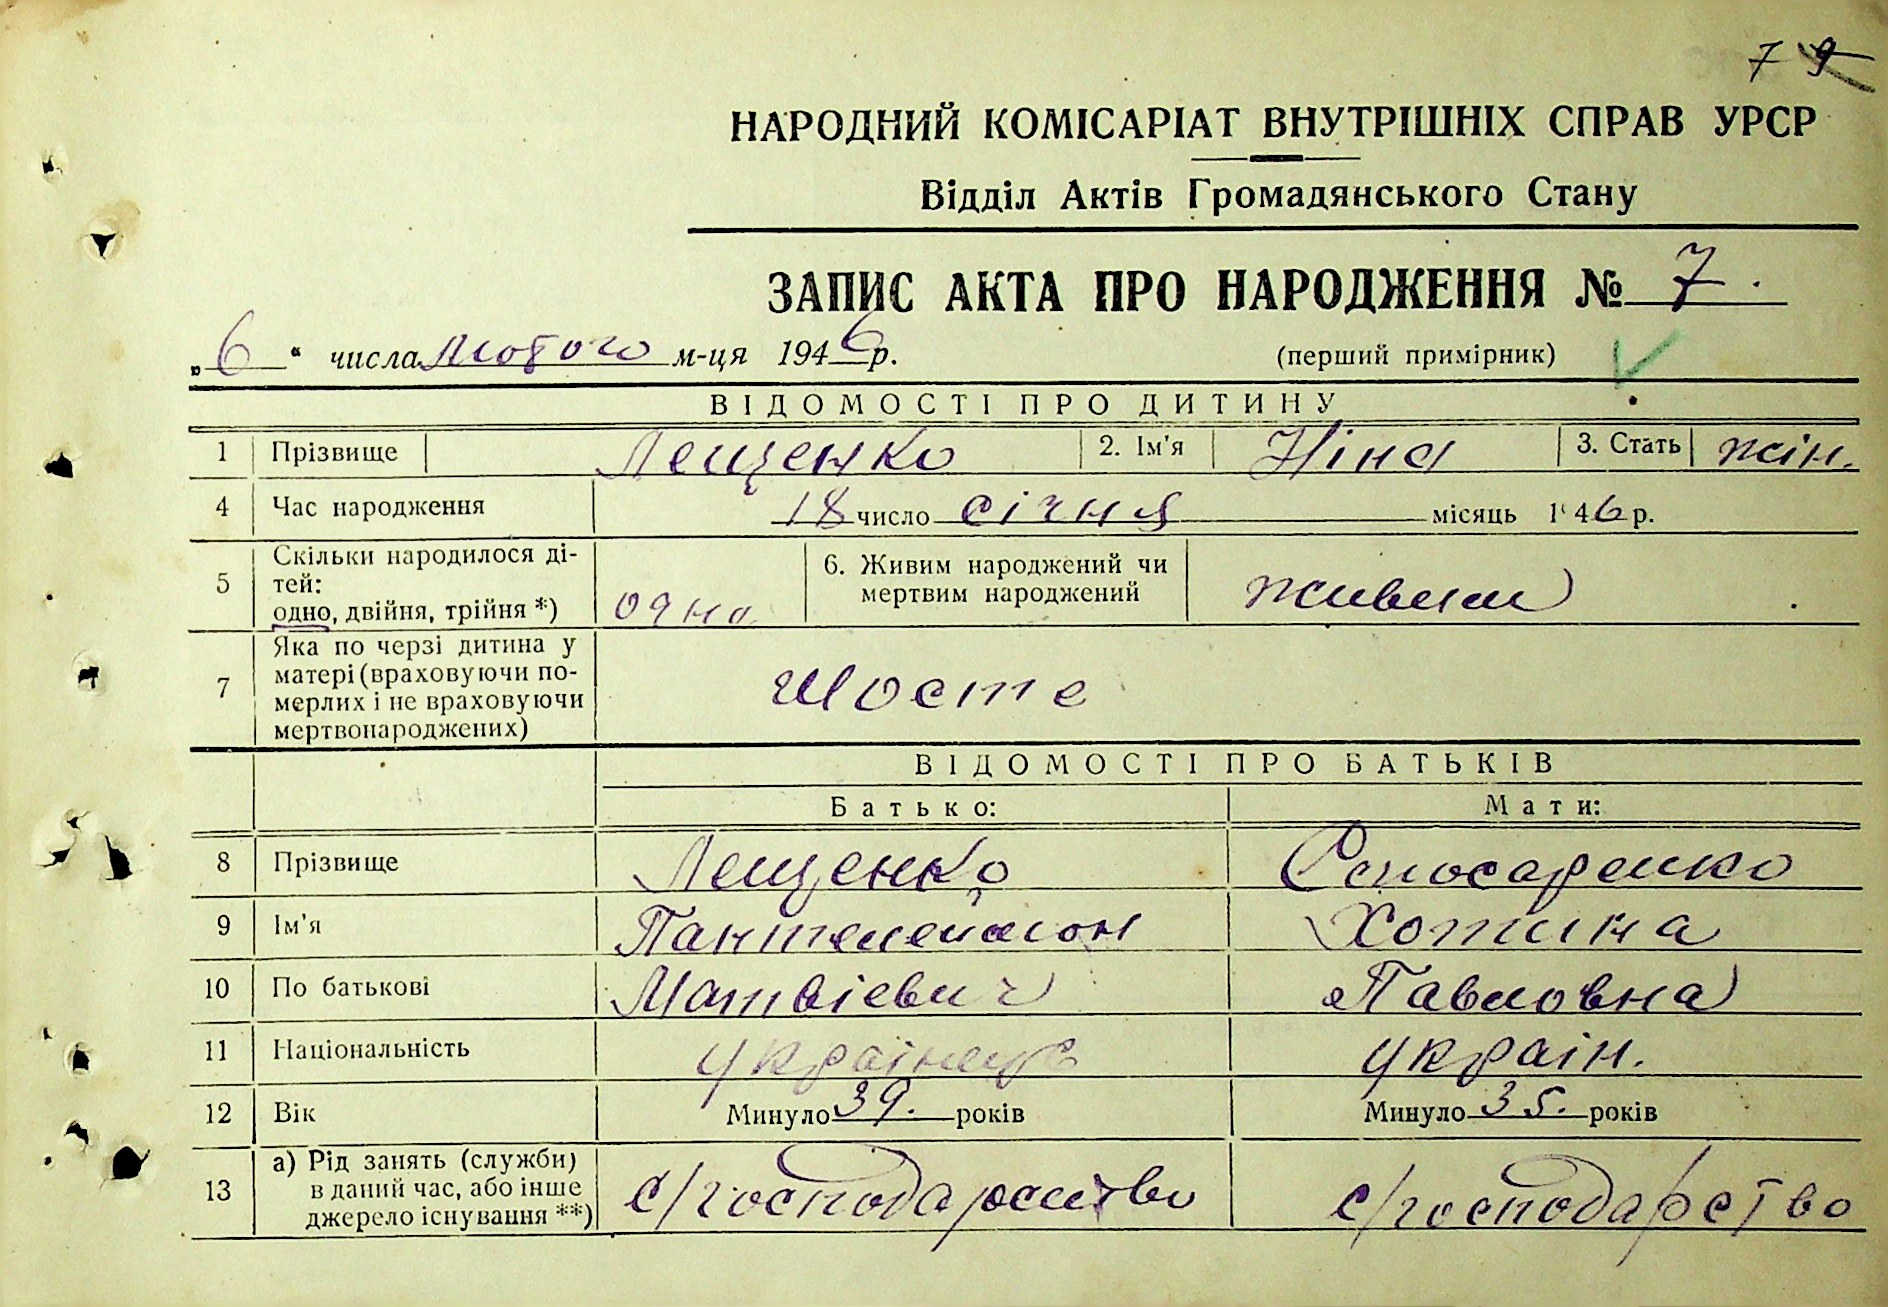 7 9
НАРОДНИЙ КОМІСАРІАТ ВНУТРІШНІХ СПРАВ УРСР
Відділ Актів Громадянського Стану
ЗАПИС АКТА ПРО НАРОДЖЕННЯ № 7.
„6“ числа лютого м-ця 1946 р.
(перший примірник)
ВІДОМОСТІ ПРО ДИТИНУ
1 Прізвище Лещенко 2. Ім'я Ніна 3. Стать жін.
4 Час народження 18 число січня місяць 1946 р.
5 Скільки народилося ді-
тей:
одно, двійня, трійня *) одна
6. Живим народжений чи
мертвим народжений живим
7 Яка по черзі дитина у
матері (враховуючи по-
мерлих і не враховуючи
мертвонароджених) Шосте
ВІДОМОСТІ ПРО БАТЬКІВ
Батько: Мати:
8 Прізвище Лещенко
9 Ім'я Пантелеймон Хотина
10 По батькові Матвієвич Павловна
11 Національність українець україн.
12 Вік Минуло 39. років Минуло 35. років
13 а) Рід занять (служби)
в даний час, або інше
джерело існування **) с/господарство с/господарство